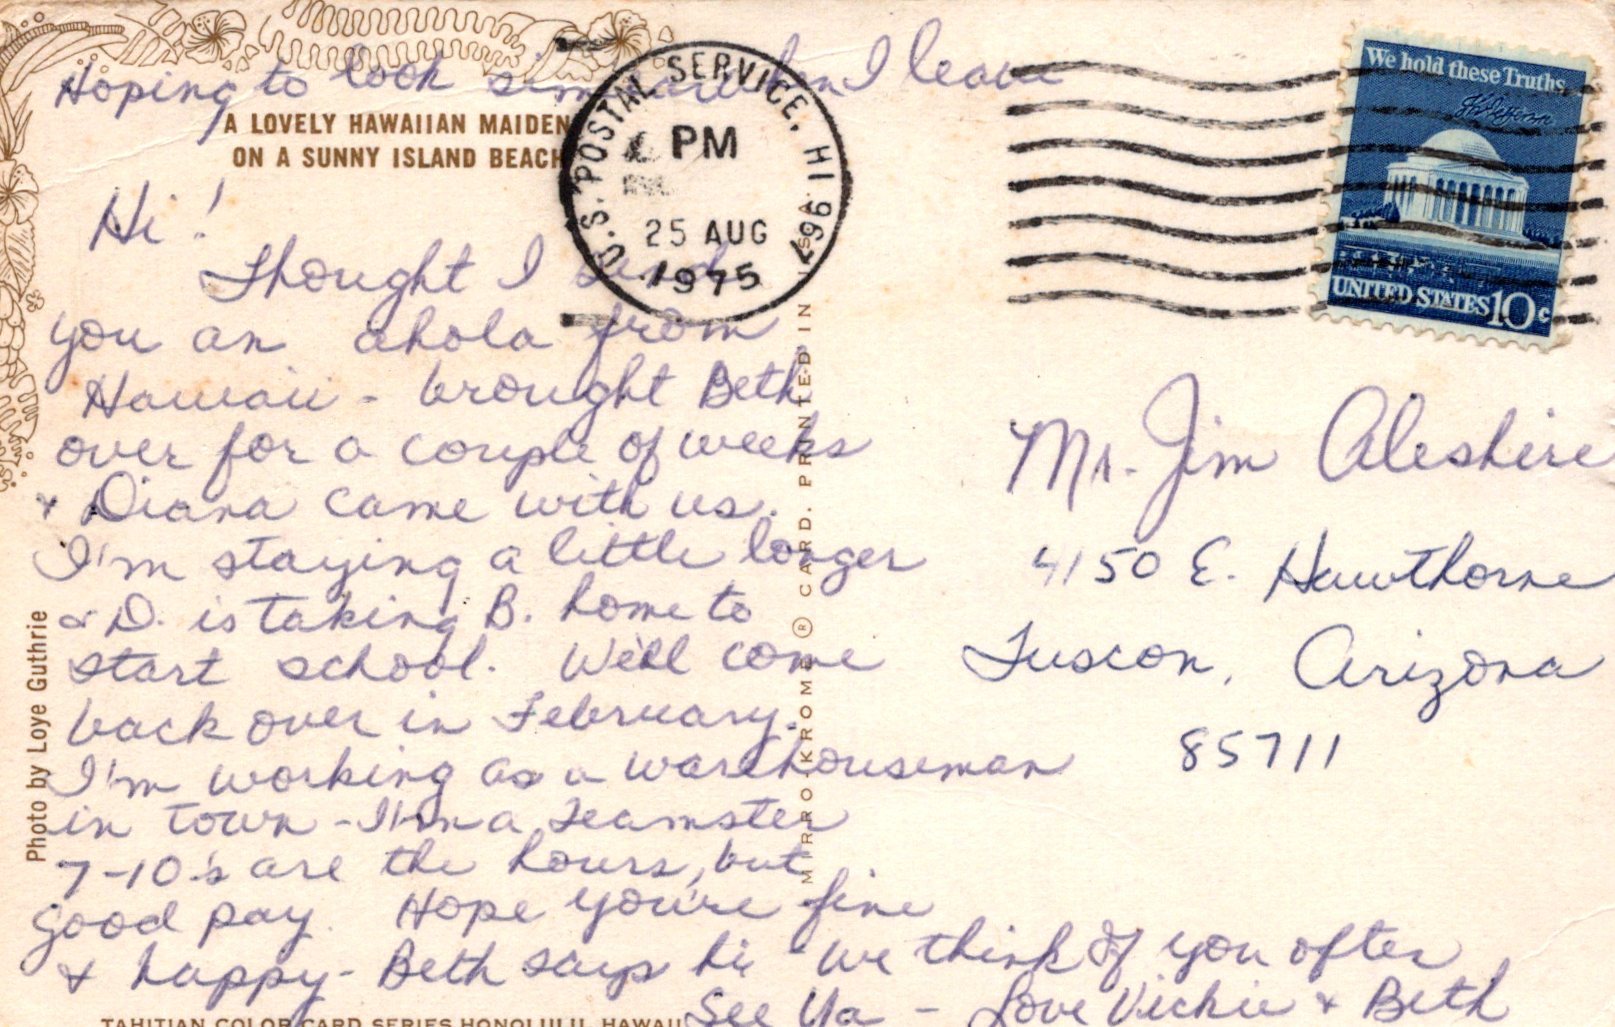 Hoping to look similar when I leave
A LOVELY HAWAIIAN MAIDEN
ON A SUNNY ISLAND BEACH
Hi!
Thought I send
you an ahola from
Hawaii - brought Beth
over for a couple of weeks
& Diana came with us.
I'm staying a little longer
& D. is taking B. home to
start school. We'll come
back over in February.
I'm working as a warehouseman
in town - I'm a Teamster
7-10's are the hours, but
good pay. Hope you're fine
& happy - Beth says hi - We think of you often
See Ya - Love Vickie & Beth
Photo by Loye Guthrie
TAHITIAN COLOR CARD SERIES HONOLULU, HAWAII
MIRRO-KROME® CARD. PRINTED IN U.S.A.
U.S. POSTAL SERVICE, HI 967
PM
25 AUG
1975
We hold these Truths
Th Jefferson
UNITED STATES 10c
Mr. Jim Aleshire
4150 E. Hawthorne
Tuscon, Arizona
85711